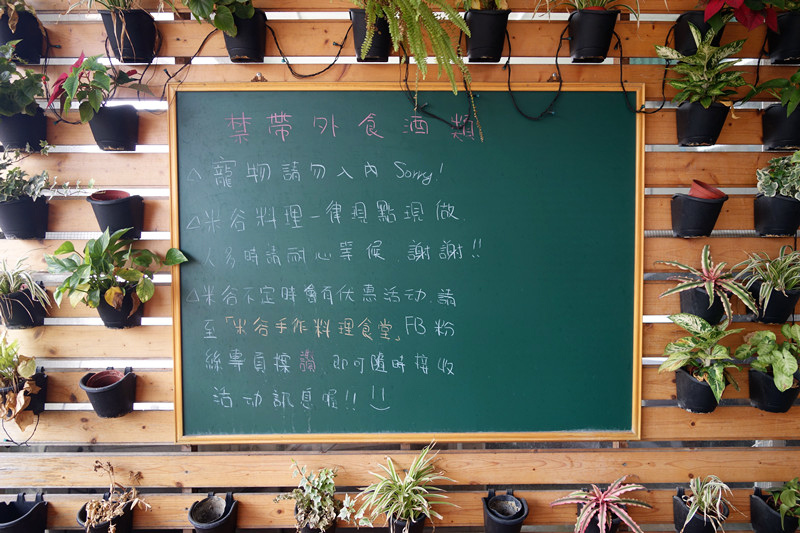 禁帶外食酒類
△寵物請勿入內 Sorry!
△米谷料理一律現點現做.
人多時請耐心等候.謝謝!!
△米谷不定時會有优惠活动.請
至「米谷手作料理食堂」FB粉
絲專頁按讚,即可隨時接收
活动訊息喔!!